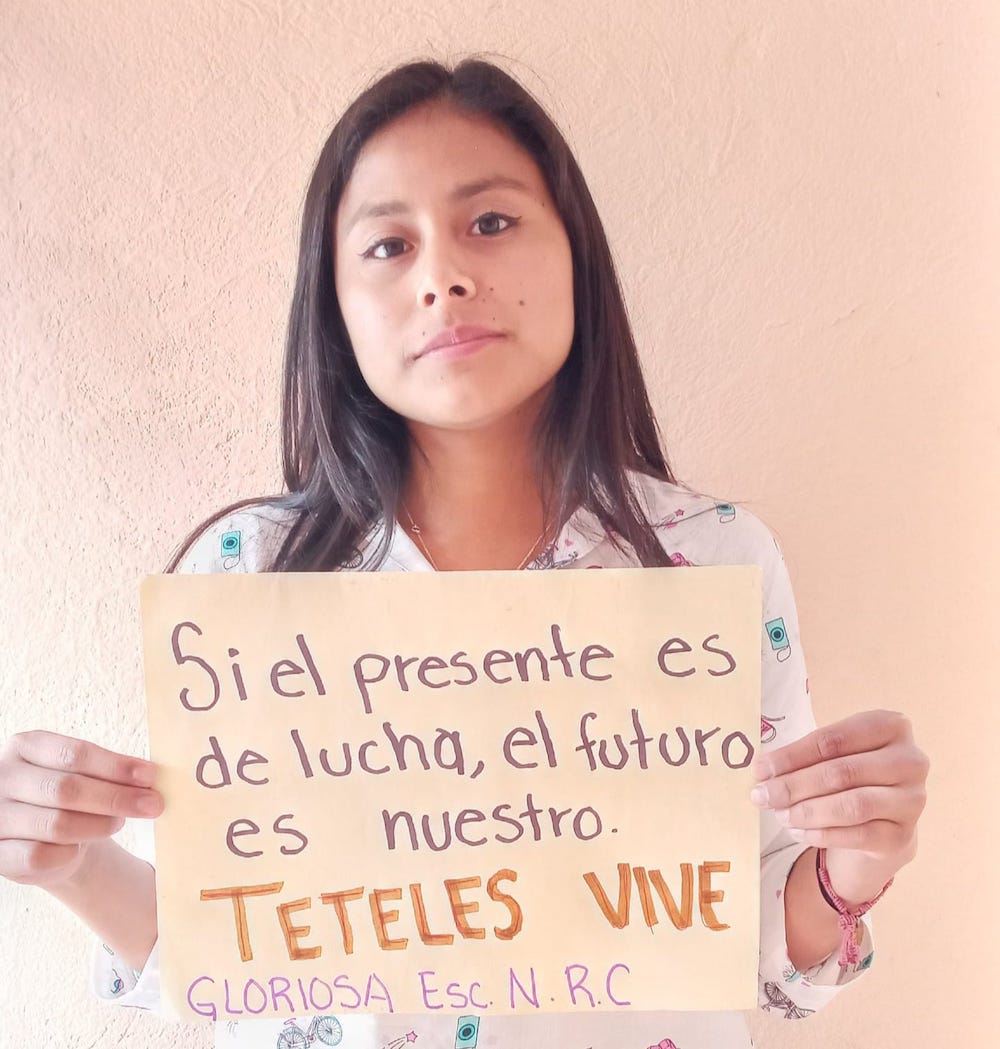 Si el presente es
de lucha, el futuro
es nuestro.
TETELES VIVE
GLORIOSA Esc. N. R. C